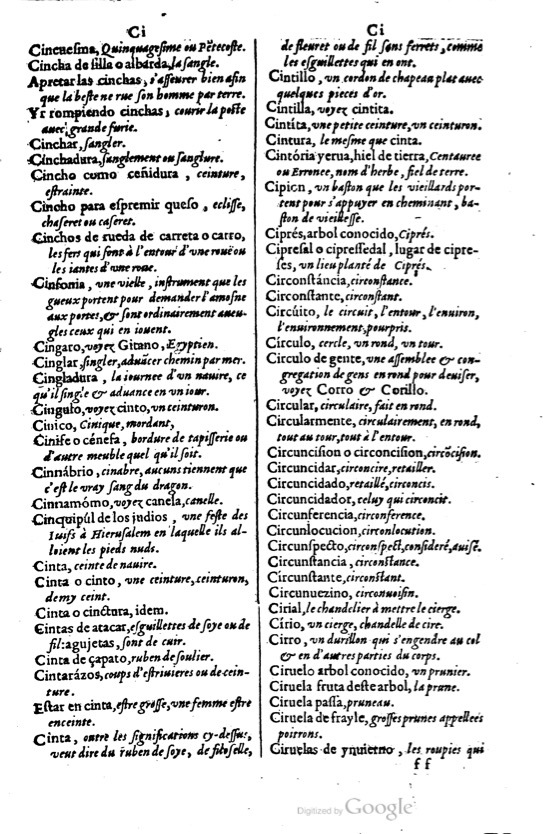 Ci
Cincuesma, Quinquagesime ou Pētecoste.
Cincha de silla o albarda, la sangle.
Apretar las cinchas, s'asseurer bien afin
que la beste ne rue son homme par terre.
Yr rompiendo cinchas, courir la poste
auec grande furie.
Cinchar, sangler.
Cinchadura, sanglement ou sanglure.
Cincho como ceñidura, ceinture,
estrainte.
Cincho para espremir queso, eclisse,
chaseret ou caseret.
Cinchos de rueda de carreta o carro,
les fers qui sont à l'entour d'vne rouë ou
les iantes d'vne roue.
Cinfonia, vne vielle, instrument que les
gueux portent pour demander l'amosne
aux portes, & sont ordinairement aueu-
gles ceux qui en iouent.
Cingaro, voyez Gitano, Egyptien.
Cinglar, singler, aduācer chemin par mer.
Cingladura, la iournee d'vn nauire, ce
qu'il single & aduance en vn iour.
Cingulo, voyez cinto, vn ceinturon.
Cinico, Cinique, mordant,
Cinife o cénefa, bordure de tapisserie ou
d'autre meuble quel qu'il soit.
Cinnábrio, cinabre, aucuns tiennent que
c'est le vray sang du dragon.
Cinnamómo, voyez canela, canelle.
Cinquipúl de los judios, vne feste des
Iuifs à Hierusalem en laquelle ils al-
loient les pieds nuds.
Cinta, ceinte de nauire.
Cinta o cinto, vne ceinture, ceinturon,
demy ceint.
Cinta o cinctura, idem.
Cintas de atacar, esguillettes de soye ou de
fil: agujetas, sont de cuir.
Cinta de çapato, ruben de soulier.
Cintarázos, coups d'estriuieres ou de cein-
ture.
Estar en cinta, estre grosse, vne femme estre
enceinte.
Cinta, outre les significations cy-dessus,
veut dire du ruben de soye, de filoselle,
Ci
de fleuret ou de fil sans ferrets, comme
les esguillettes qui en ont.
Cintillo, vn cordon de chapeau plat auec
quelques pieces d'or.
Cintilla, voyez cintita.
Cintíta, vne petite ceinture, vn ceinturon.
Cintura, le mesme que cinta.
Cintória yerua, hiel de tierra, Centauree
ou Erronee, nom d'herbe, fiel de terre.
Cipion, vn baston que les vieillards por-
tent pour s'appuyer en cheminant, ba-
ston de vieillesse.
Ciprés, arbol conocido, Ciprés.
Cipresal o cipressedal, lugar de cipre-
ses, vn lieu planté de Ciprés.
Circonstáncia, circonstance.
Circonstante, circonstant.
Circúito, le circuit, l'entour, l'enuiron,
l'environnement, pourpris.
Círculo, cercle, vn rond, vn tour.
Circulo de gente, vne assemblee & con-
gregation de gens en rond pour deuiser,
voyez Corro & Corillo.
Circular, circulaire, fait en rond.
Circularmente, circulairement, en rond,
tout au tour, tout à l'entour.
Circuncision o circoncision, circōcision.
Circuncidar, circoncire, retailler.
Circuncidado, retaillé, circoncis.
Circuncidador, celuy qui circoncit.
Circunferencia, circonference.
Circunlocucion, circonlocution.
Circunspecto, circonspect, consideré, auisé.
Circunstancia, circonstance.
Circunstante, circonstant.
Circunuezino, circonuoisin.
Cirial, le chandelier à mettre le cierge.
Círio, vn cierge, chandelle de cire.
Cirro, vn durillon qui s'engendre au col
& en d'autres parties du corps.
Ciruelo arbol conocido, vn prunier.
Ciruela fruta deste arbol, la prune.
Ciruela passa, pruneau.
Ciruela de frayle, grosses prunes appellees
poitrons.
Ciruelas de ynuierno, les roupies qui
ff
Digitized by Google